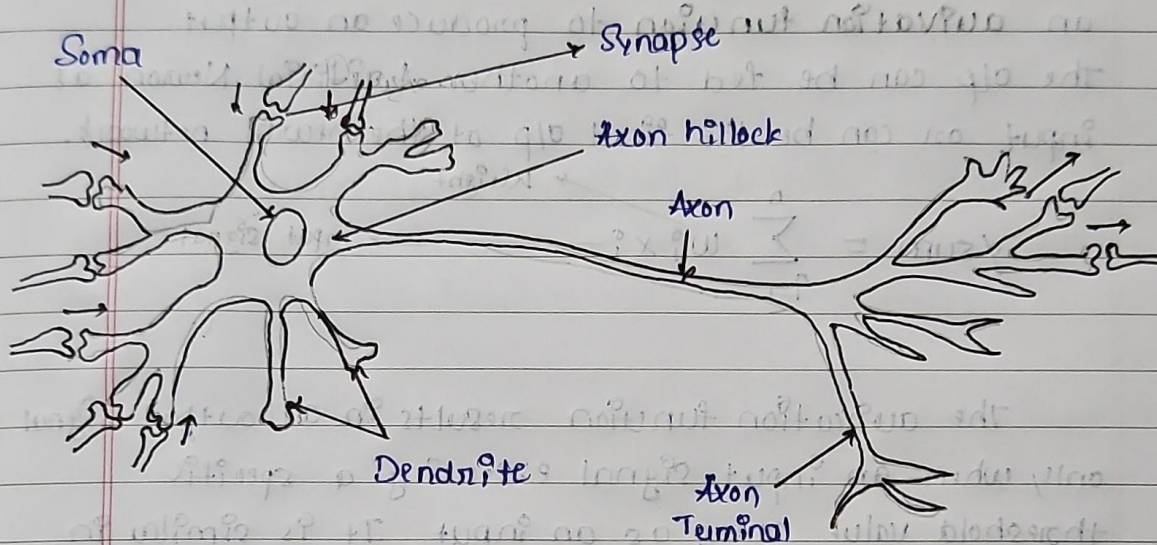 Soma
Synapse
Axon hillock
Axon
Dendrite
Axon
Terminal